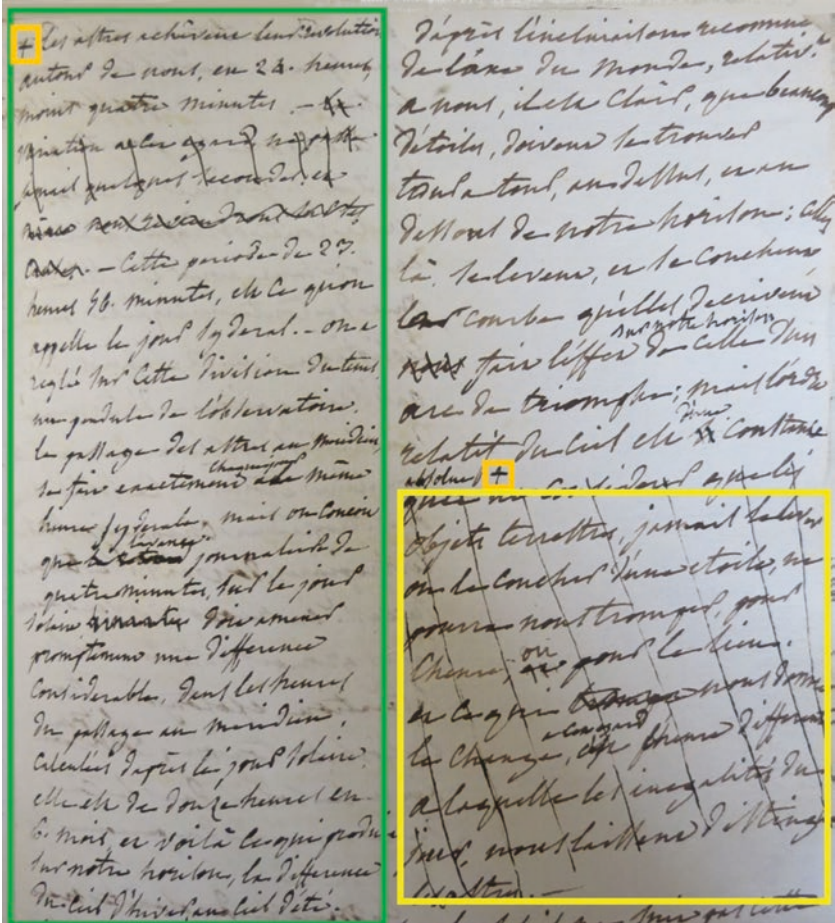 + Les astres achêvent leur revolution
autour de nous, en 24. heures,
moins quatre minutes. —
variation a cet égard ne passe
jamais quelques secondes, et

— Cette periode de 23.
heures 56. minutes, est ce qu'on
appelle le jour syderal. — on a
reglé sur cette division du tems,
une pendule de l'observatoire.
le passage des astres au meridien,
se fait exactement chaque jour a la même
heure syderale, mais on conçoit
que l'avance journaliere de
quatre minutes, sur le jour
solaire doit amener
promptement une difference
considerable, dans les heures
du passage au meridien,
calculées d'après le jour solaire.
elle est de douze heures en
6. mois, et voilà ce qui produit
sur notre horison, la difference
du ciel d'hiver au ciel d'été.
d'après l'inclinaison reconnue
de l'axe du monde, relativ.t
a nous, il est clair, que beaucoup
d'étoiles, doivent se trouver
tour a tour, au dessus, et au
dessous de notre horison; celles
là se levent, et se couchent
courbe qu'elles decrivent
sur notre horison
fait l'effet de celle d'un
arc de triomphe; mais l'ordre
relatif du ciel est d'une constance
absolue +
que les
objets terrestres, jamais le lever
ou le coucher d'une etoile, ne
pourra nous tromper, pour
l'heure, ou pour le lieu.
et ce qui nous donne
le change, a cet egard, est l'heure differente
a laquelle les inegalités du
jour, nous laissent distinguer
les astres. —